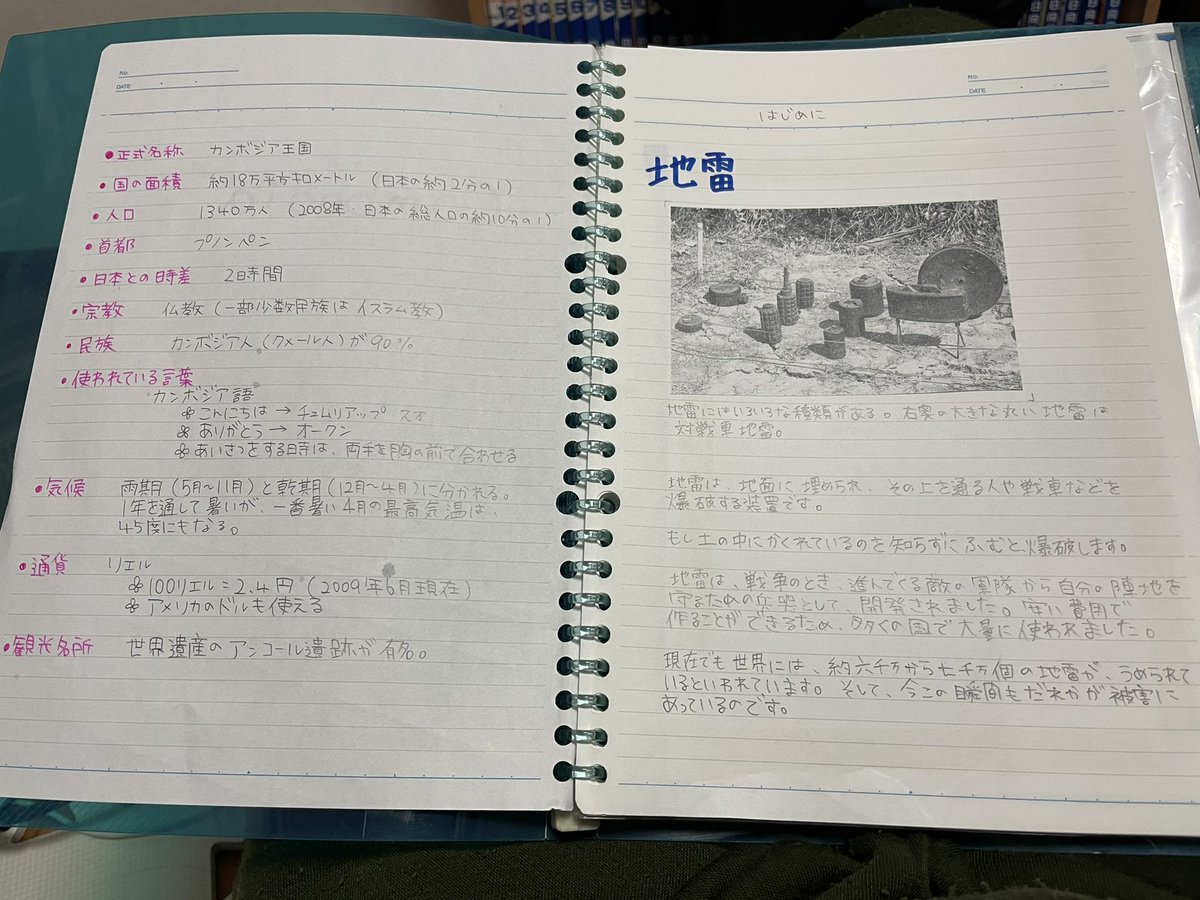 No.
DATE
•正式名称 カンボジア王国
•国の面積 約18万平方キロメートル (日本の約2分の1)
•人口 1340万人 (2008年・日本の総人口の約10分の1)
•首都 プノンペン
•日本との時差 2時間
•宗教 仏教(一部少数民族はイスラム教)
•民族 カンボジア人(クメール人)が90%
•使われている言葉
カンボジア語
こんにちは→チュムリアップ スオ
ありがとう→オークン
あいさつをする時は、両手を胸の前で合わせる
•気候 雨期(5月〜11月)と乾期(12月〜4月)に分かれる。
1年を通して暑いが、一番暑い4月の最高気温は、
45度にもなる。
•通貨 リエル
100リエル=2.4円 (2009年6月現在)
アメリカのドルも使える
•観光名所 世界遺産のアンコール遺跡が有名。
No.
DATE
はじめに
地雷
地雷にはいろいろな種類がある。右奥の大きな丸い地雷は
対戦車地雷。
地雷は、地面に埋められ、その上を通る人や戦車などを
爆破する装置です。
もし土の中にかくれているのを知らずにふむと、爆破します。
地雷は、戦争のとき、進んでくる敵の軍隊から自分の陣地を
守るための兵器として、開発されました。安い費用で
作ることができるため、多くの国で大量に使われました。
現在でも世界には、約六千万から七千万個の地雷が、うめられて
いるといわれています。そして、今この瞬間もだれかが被害に
あっているのです。